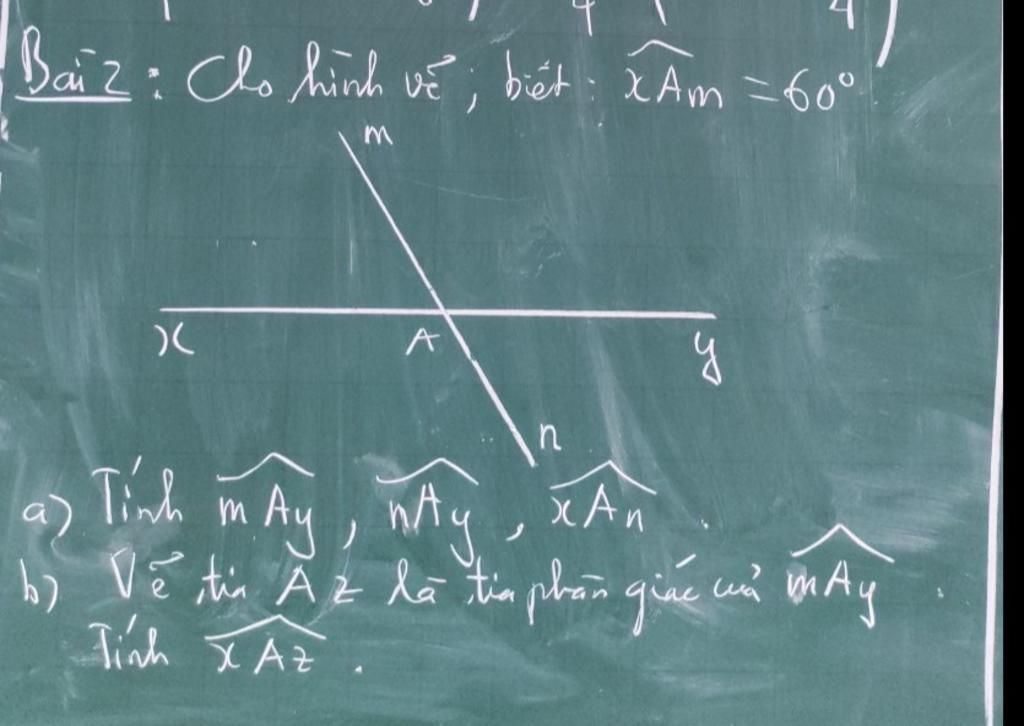 Bài 2 : Cho hình vẽ ; biết : xAm = 60°
m
x A y
n
a) Tính mAy , nAy , xAn .
b) Vẽ tia Az là tia phân giác của mAy .
Tính xAz .